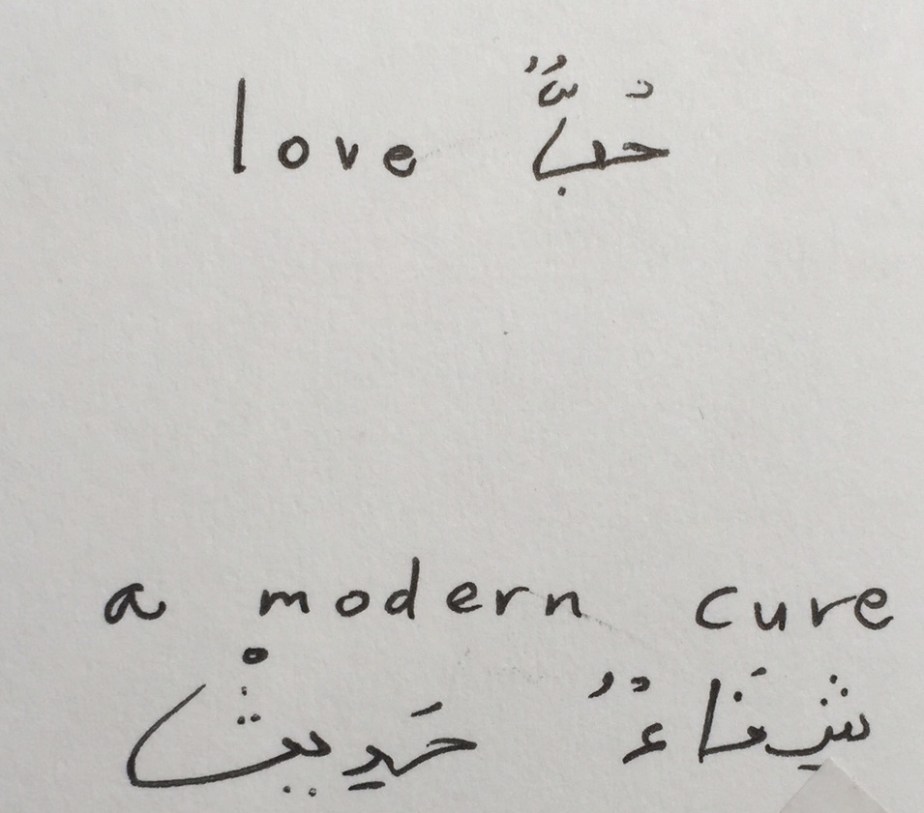 love حُبٌّ
a modern cure
شِفَاءٌ حَدِيثْ